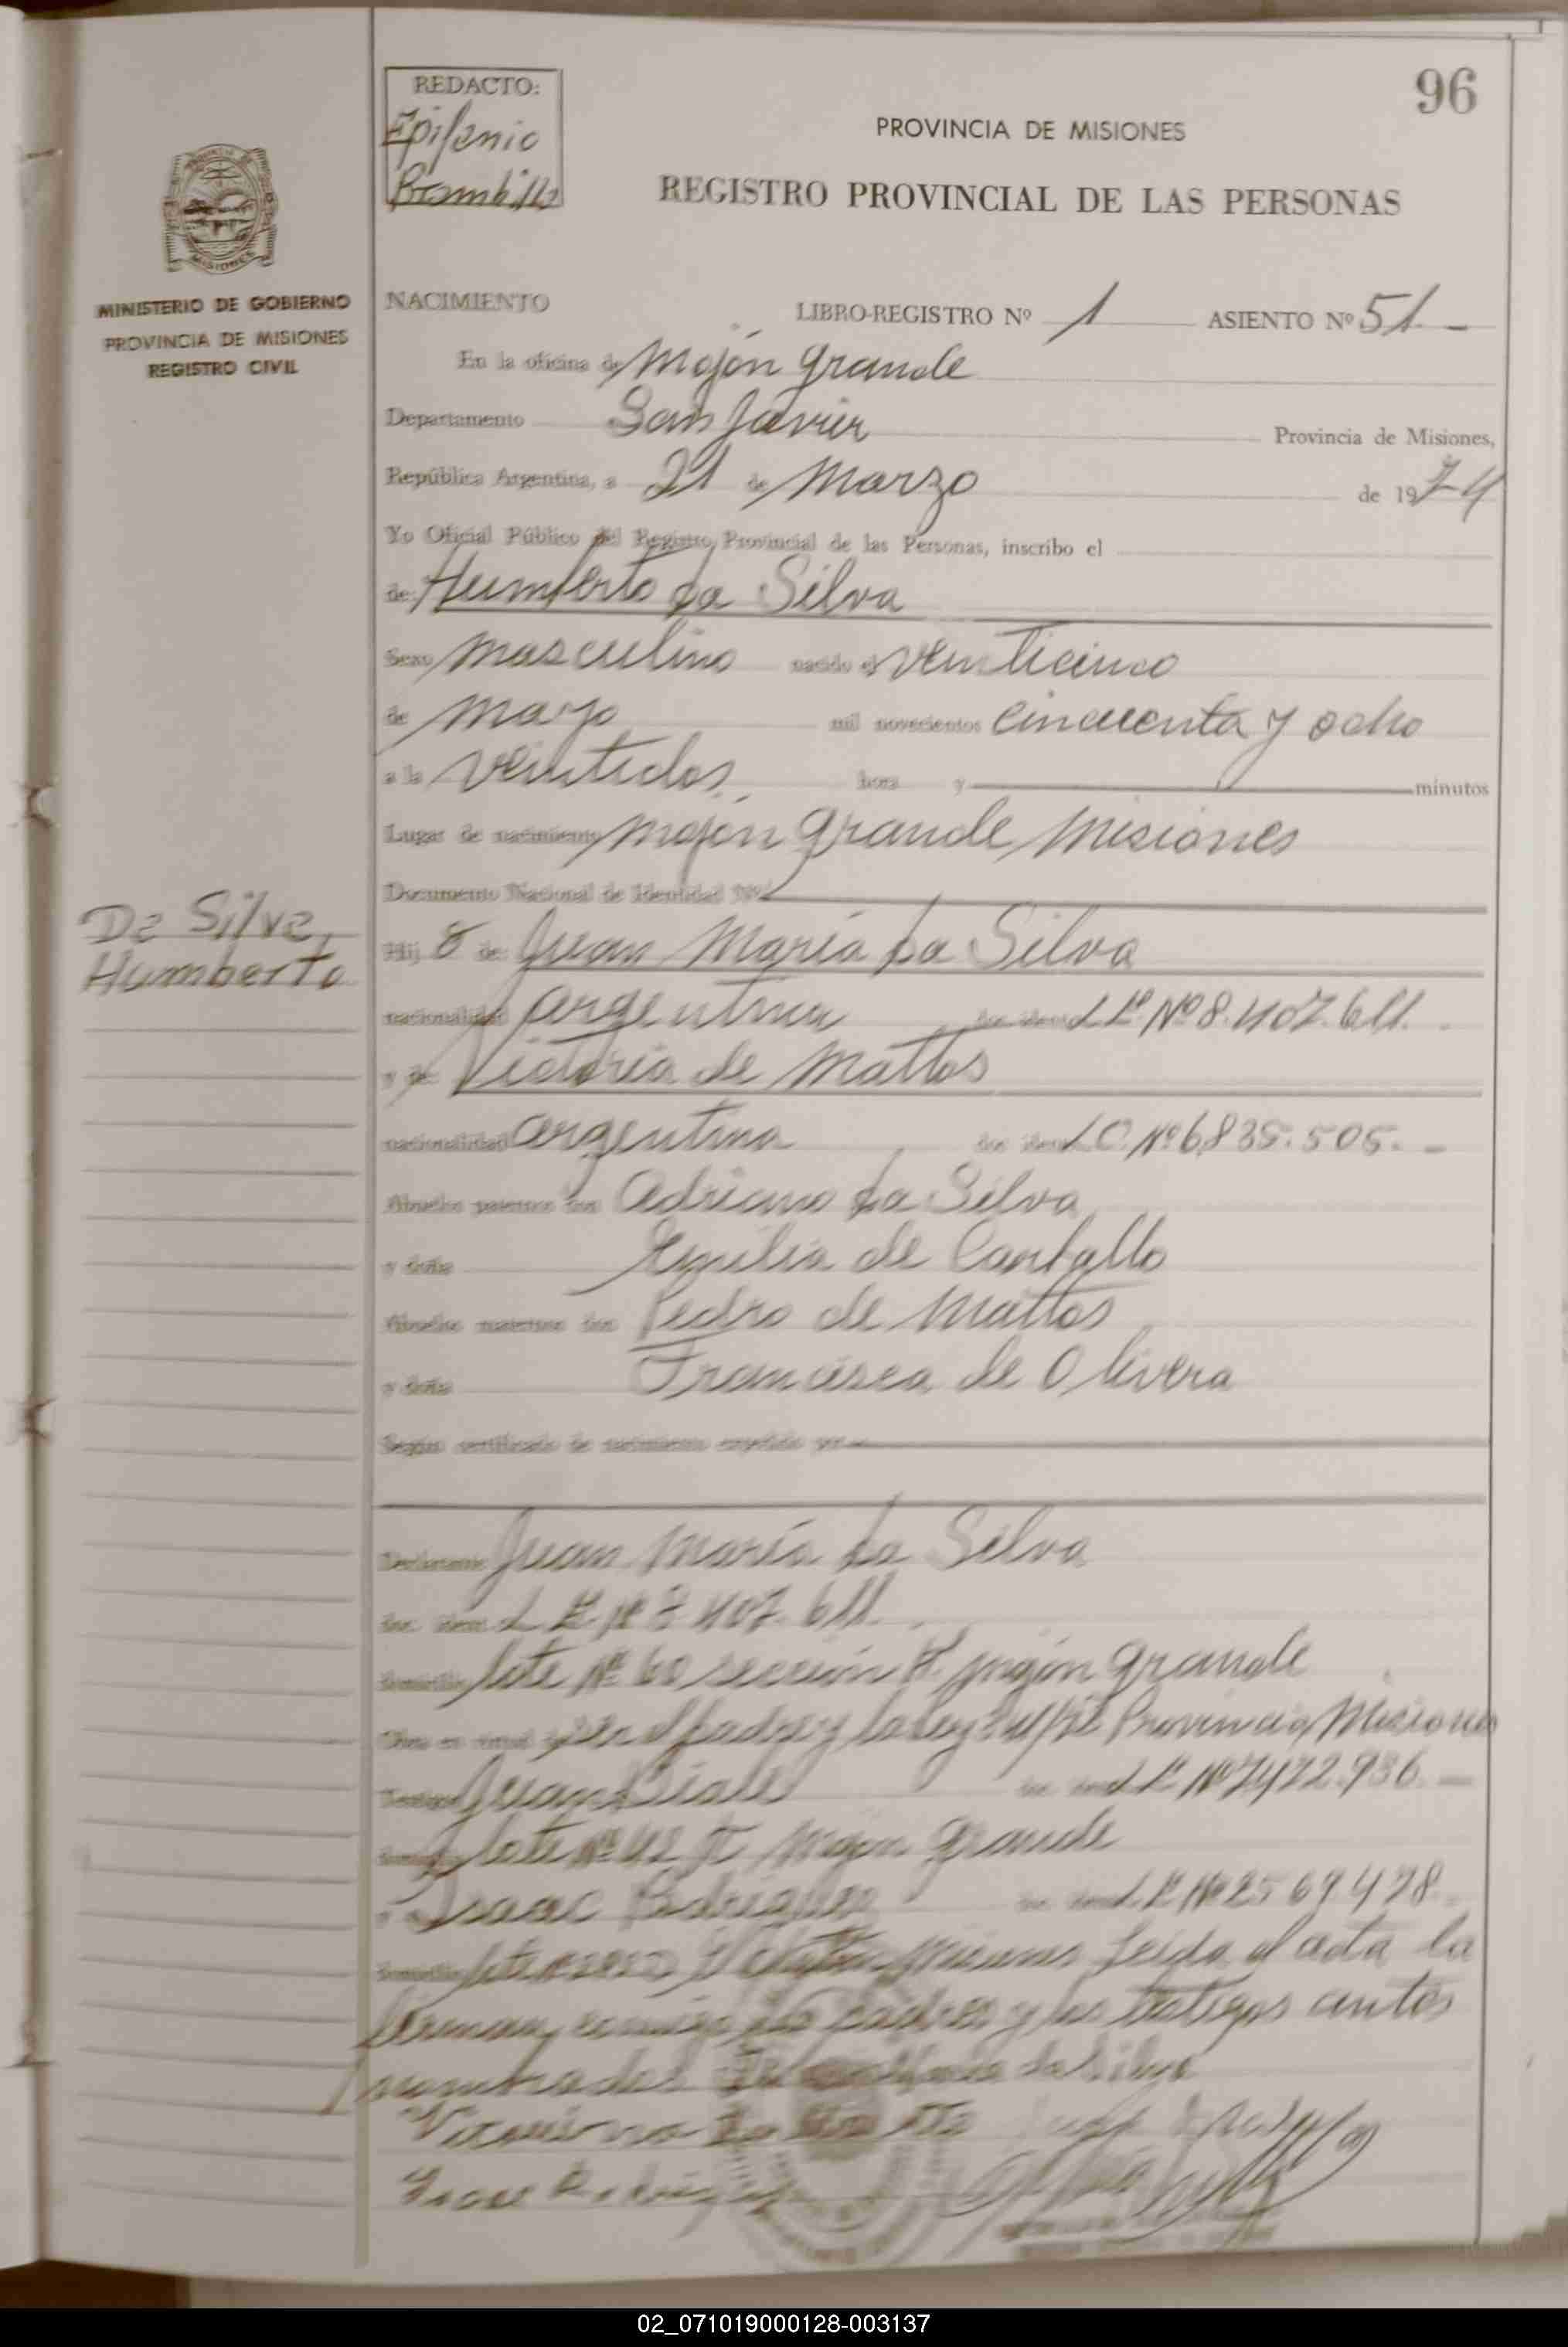 96
REDACTO:
Epifanio
Brambilla
PROVINCIA DE MISIONES
REGISTRO PROVINCIAL DE LAS PERSONAS
MISIONES
MINISTERIO DE GOBIERNO
PROVINCIA DE MISIONES
REGISTRO CIVIL
NACIMIENTO LIBRO-REGISTRO Nº 1 ASIENTO Nº 51.-
En la oficina de Mojón Grande
Departamento San Javier Provincia de Misiones,
República Argentina, a 21 de Marzo de 1974
Yo Oficial Público del Registro Provincial de las Personas, inscribo el
de: Humberto da Silva
Sexo masculino nacido el venticinco
de mayo mil novecientos cincuenta y ocho
a la ventidos hora y minutos
Lugar de nacimiento Mojón Grande Misiones
Documento Nacional de Identidad Nº
Da Silva,
Humberto
Hij o de: Juan María da Silva
nacionalidad argentina doc ident L.E. Nº 8.407.611.
y de Victoria de Mattos
nacionalidad argentina doc ident L.C. Nº 6.835.505.-
Abuelos paternos don Adriano da Silva
y doña Emilia de
Abuelos maternos don Pedro de Mattos
y doña Francisca de Olivera
Según certificado de nacimiento expedido por
Declarante Juan María da Silva
doc ident L.E. Nº 8.407.611.
domicilio lote Nº 60 sección Mojón Grande
Obra en virtud de ser el padre y la ley Provincia Misiones
Testigos Juan L.E. Nº 7422.936.-
domicilio lote Nº 42 Mojón Grande
y Isaac Rodriguez doc ident L.E. Nº 2569478.
domicilio lote Misiones leida el acta la
firman conmigo los padres y los testigos antes
nombrados da Silva
Isaac Rodriguez
02_071019000128-003137